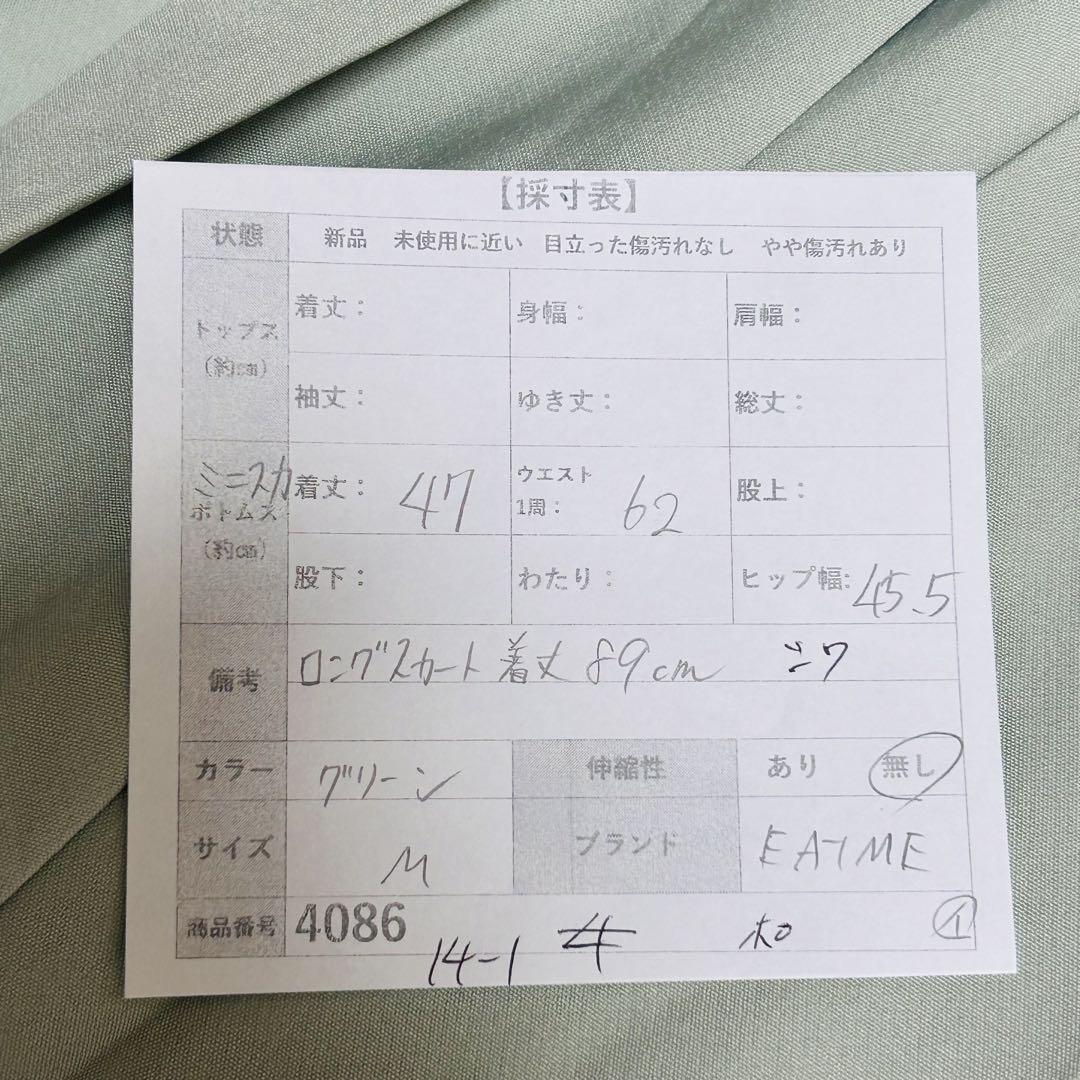 【採寸表】
状態 新品 未使用に近い 目立った傷汚れなし やや傷汚れあり
トップス（約㎝） 着丈： 身幅： 肩幅：
袖丈： ゆき丈： 総丈：
ミニスカ ボトムス（約㎝） 着丈： 47 ウエスト1周： 62 股上：
股下： わたり： ヒップ幅: 45.5
備考 ロングスカート 着丈 89cm シワ
カラー グリーン 伸縮性 あり 無し
サイズ M ブランド EATME
商品番号 4086
14-1